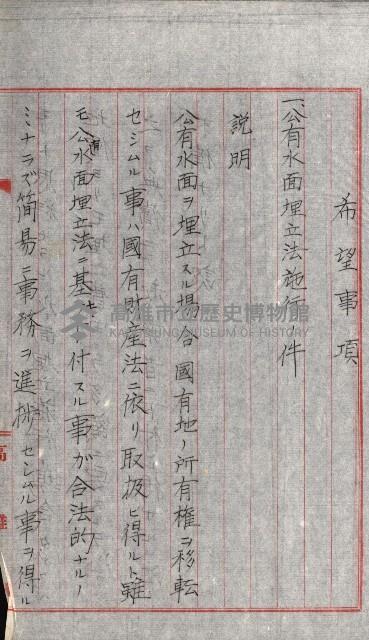 希望事項
一、公有水面埋立法施行ノ件
説明
公有水面ヲ埋立スル場合國有地ノ所有権ヲ移転
セシムル事ハ國有財産法ニ依リ取扱ヒ得ルト雖
モ公有水面埋立法ニ基キ付スル事ガ合法的ナルノ
ミナラズ簡易ニ事務ヲ進捗セシムル事ヲ得ル
高雄
高雄市立歷史博物館
KAOHSIUNG MUSEUM OF HISTORY